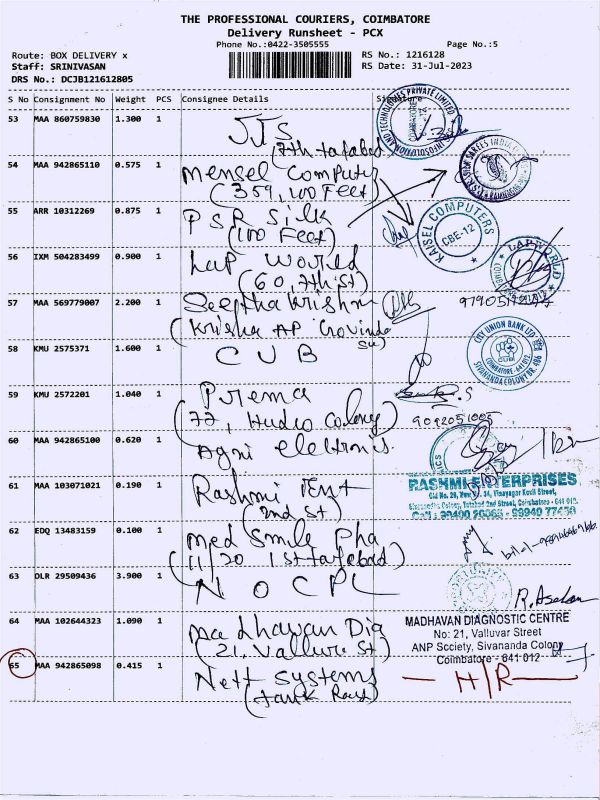 THE PROFESSIONAL COURIERS, COIMBATORE
Delivery Runsheet - PCX
Phone No.:0422-3505555
Page No.:5
Route: BOX DELIVERY x
RS No.: 1216128
Staff: SRINIVASAN
RS Date: 31-Jul-2023
DRS No.: DCJB121612805
S No Consignment No Weight PCS Consignee Details Signature
53 MAA 860759830 1.300 1 JTS
(7th tatabad
54 MAA 942865110 0.575 1 Mensel Computer
(359, 100 Feet)
55 ARR 10312269 0.875 1 PSR Silk
(100 Feet)
KAISEL COMPUTERS
CBE-12
56 IXM 504283499 0.900 1 Lap World
(60, 7th St)
LAPWORLD
57 MAA 569779007 2.200 1
(Krisha AP Govinda
58 KMU 2575371 1.600 1 CUB
CITY UNION BANK LTD
COIMBATORE-641 012
SIVANANDA COLONY BR. 406
59 KMU 2572201 1.040 1 Prema
(77, Hudco Colony)
9092051005
60 MAA 942865100 0.620 1 Agni
61 MAA 103071021 0.190 1 Rashmi Ent
(2nd St)
RASHMI ENTERPRISES
Old No. 29, New No. 34, Vinayagar Kovil Street,
Sivanandha Colony, Tatabad 2nd Street, Coimbatore - 641 012.
62 EDQ 13483159 0.100 1 Med Smile Pha
(11/20 1st tatabad)
63 DLR 29509436 3.900 1 NOCPL
64 MAA 102644323 1.090 1 Madhavan Dia
(21, Valluvr St)
MADHAVAN DIAGNOSTIC CENTRE
No: 21, Valluvar Street
ANP Scciety, Sivananda Colony
Coimbatore - 641 012
65 MAA 942865098 0.415 1 Nett Systems
(Tank Road)
H/R